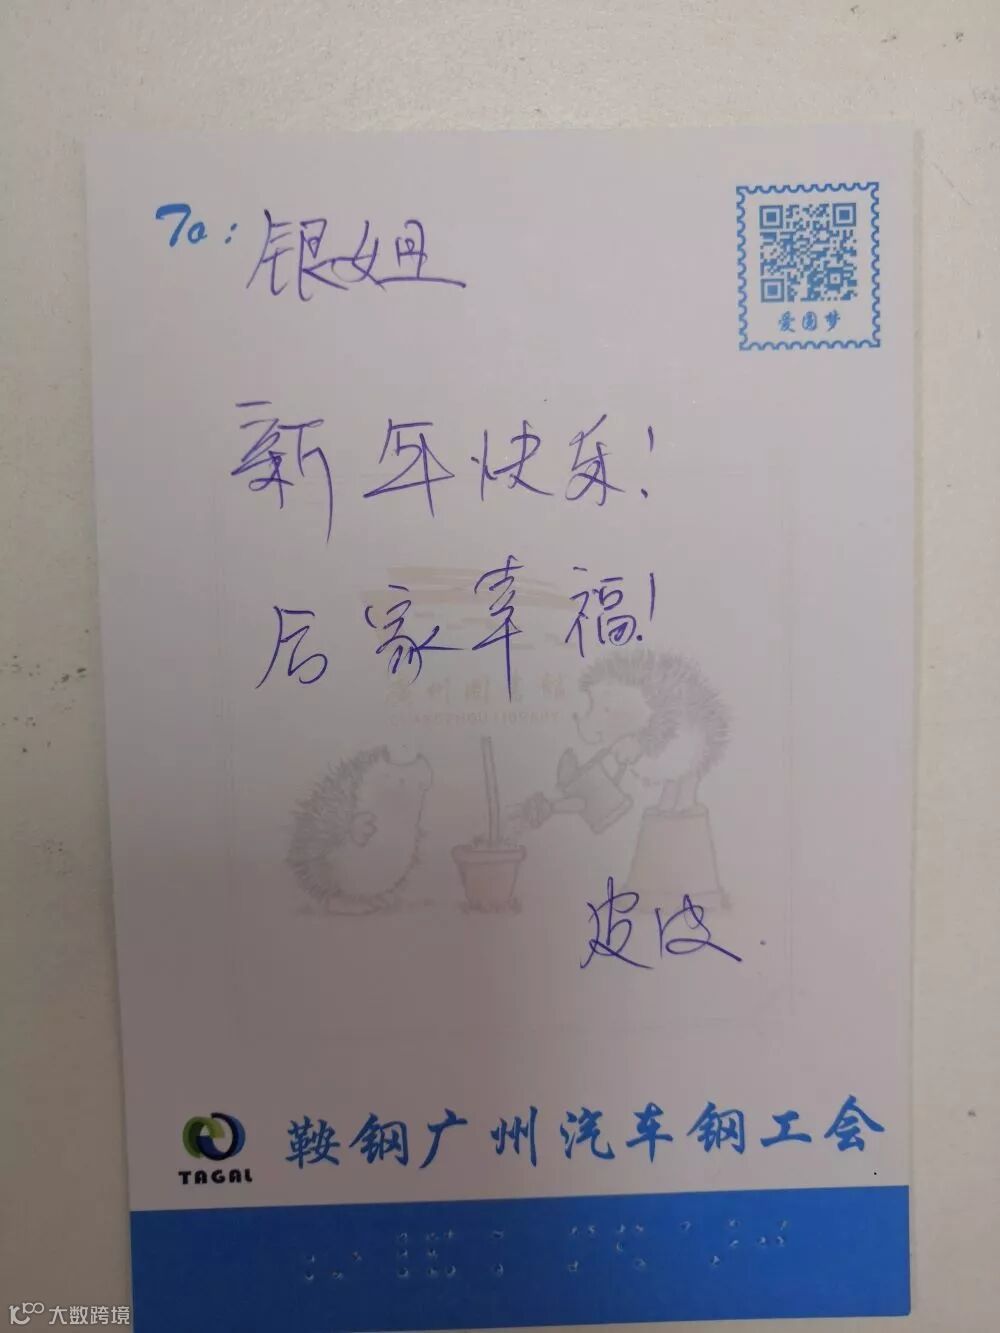 To: 银姐
爱圆梦
新年快乐!
后家幸福!
广州图书馆
GUANGZHOU LIBRARY
皮皮.
TAGAL
鞍钢广州汽车钢工会
大数跨境